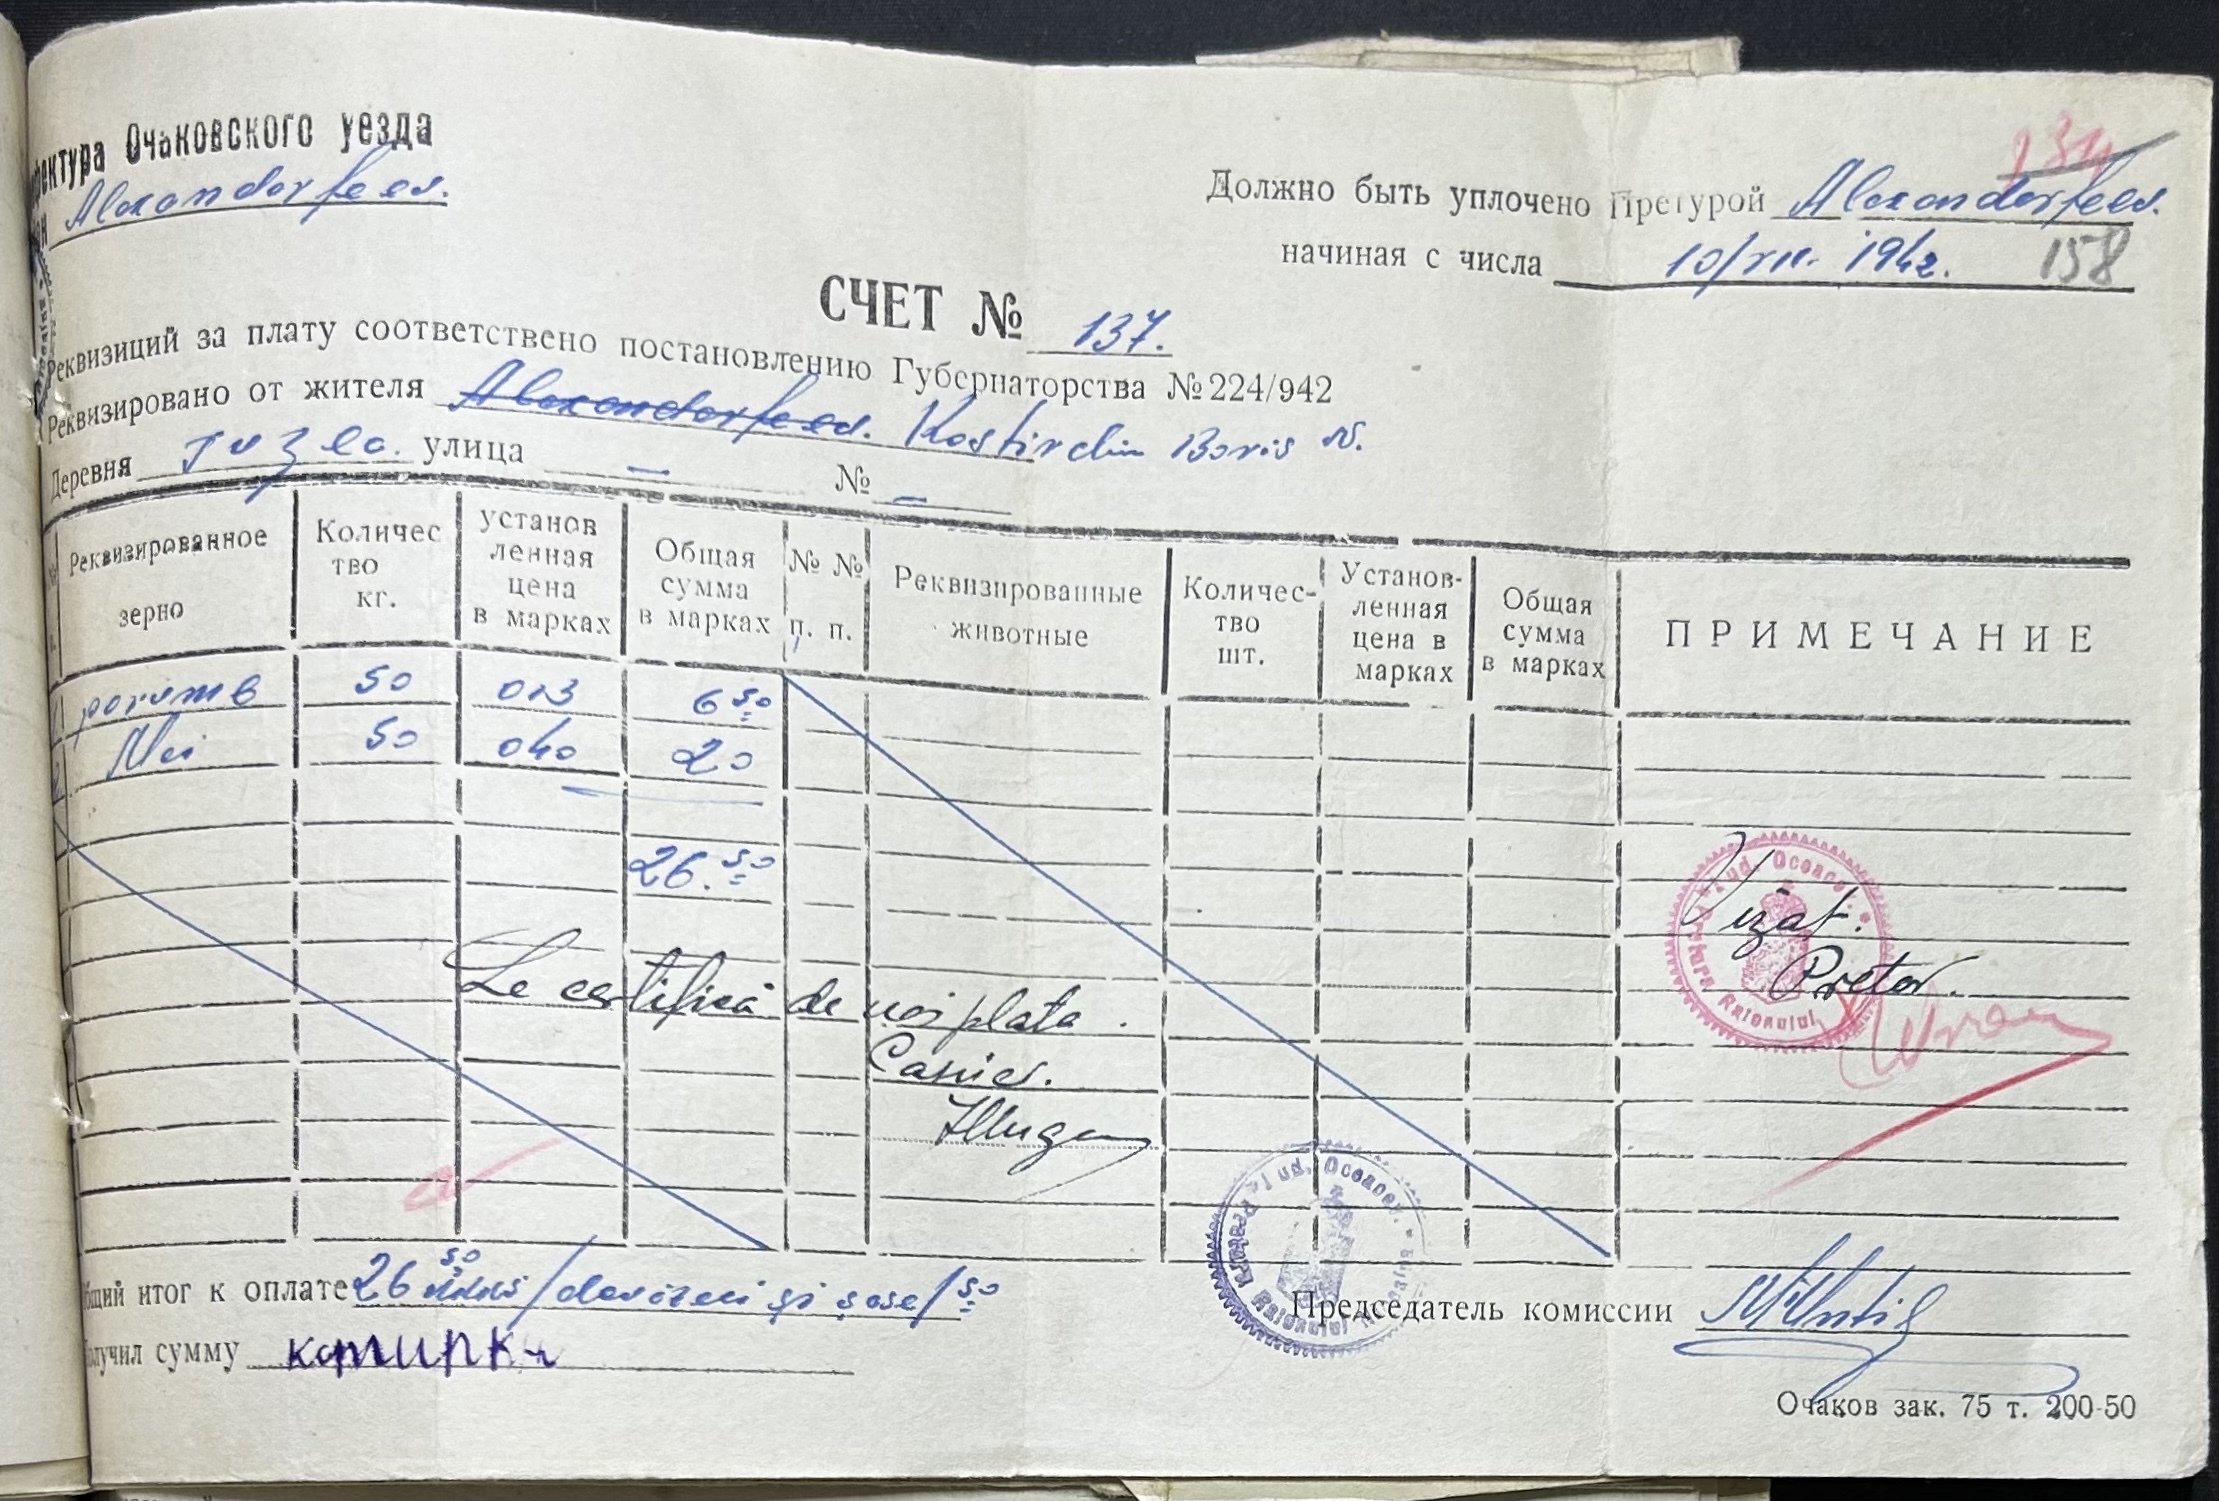 фектура Очаковского уезда
Alexandorfeev.
134
Должно быть уплочено Претурой Alexandorfeev.
начиная с числа 10/VII. 1942. 158
СЧЕТ № 137.
Реквизиций за плату соответствено постановлению Губернаторства №224/942
Реквизировано от жителя Alexandorfeev. Kostirchin Boris N.
Деревня улица — № —
Реквизированное зерно
Количес тво кг.
установ ленная цена в марках
Общая сумма в марках
№ № п. п.
Реквизированные животные
Количес- тво шт.
Установ- ленная цена в марках
Общая сумма в марках
ПРИМЕЧАНИЕ
porumb 50 013 6 50
Mei 50 040 20
26.50
Se certifică de noi plata.
Casier.
Vizat.
Pretor.
Jud. Oceacov. * Pretura Raionului
Jud. Oceacov. * Pretura Raionului
Общий итог к оплате 26 50 /douăzeci și șase/ 50
Получил сумму
Председатель комиссии
Очаков зак. 75 т. 200-50